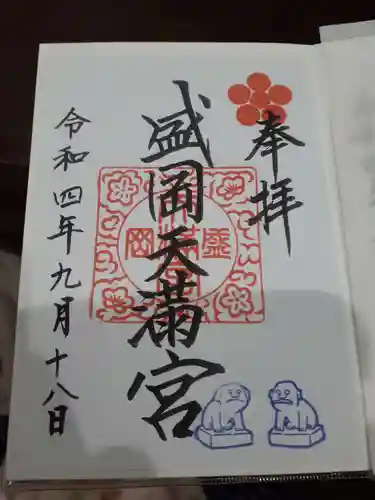 奉拝
盛岡天満宮
令和四年九月十八日